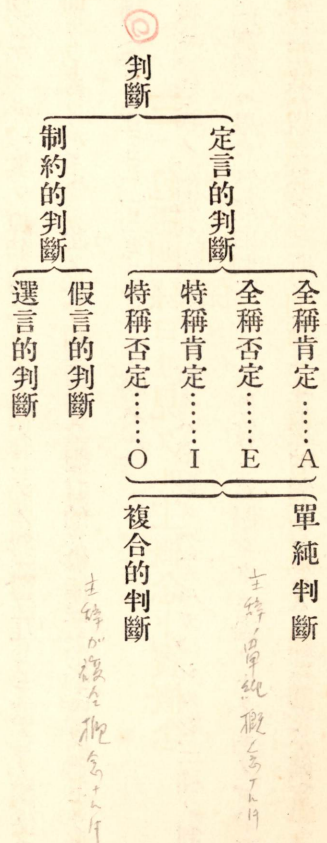 判斷
定言的判斷
全稱肯定……A
全稱否定……E
特稱肯定……I
特稱否定……O
單純判斷
複合的判斷
制約的判斷
假言的判斷
選言的判斷
主辞ノ單純概念ナル時
主辞が複合概念ナル時